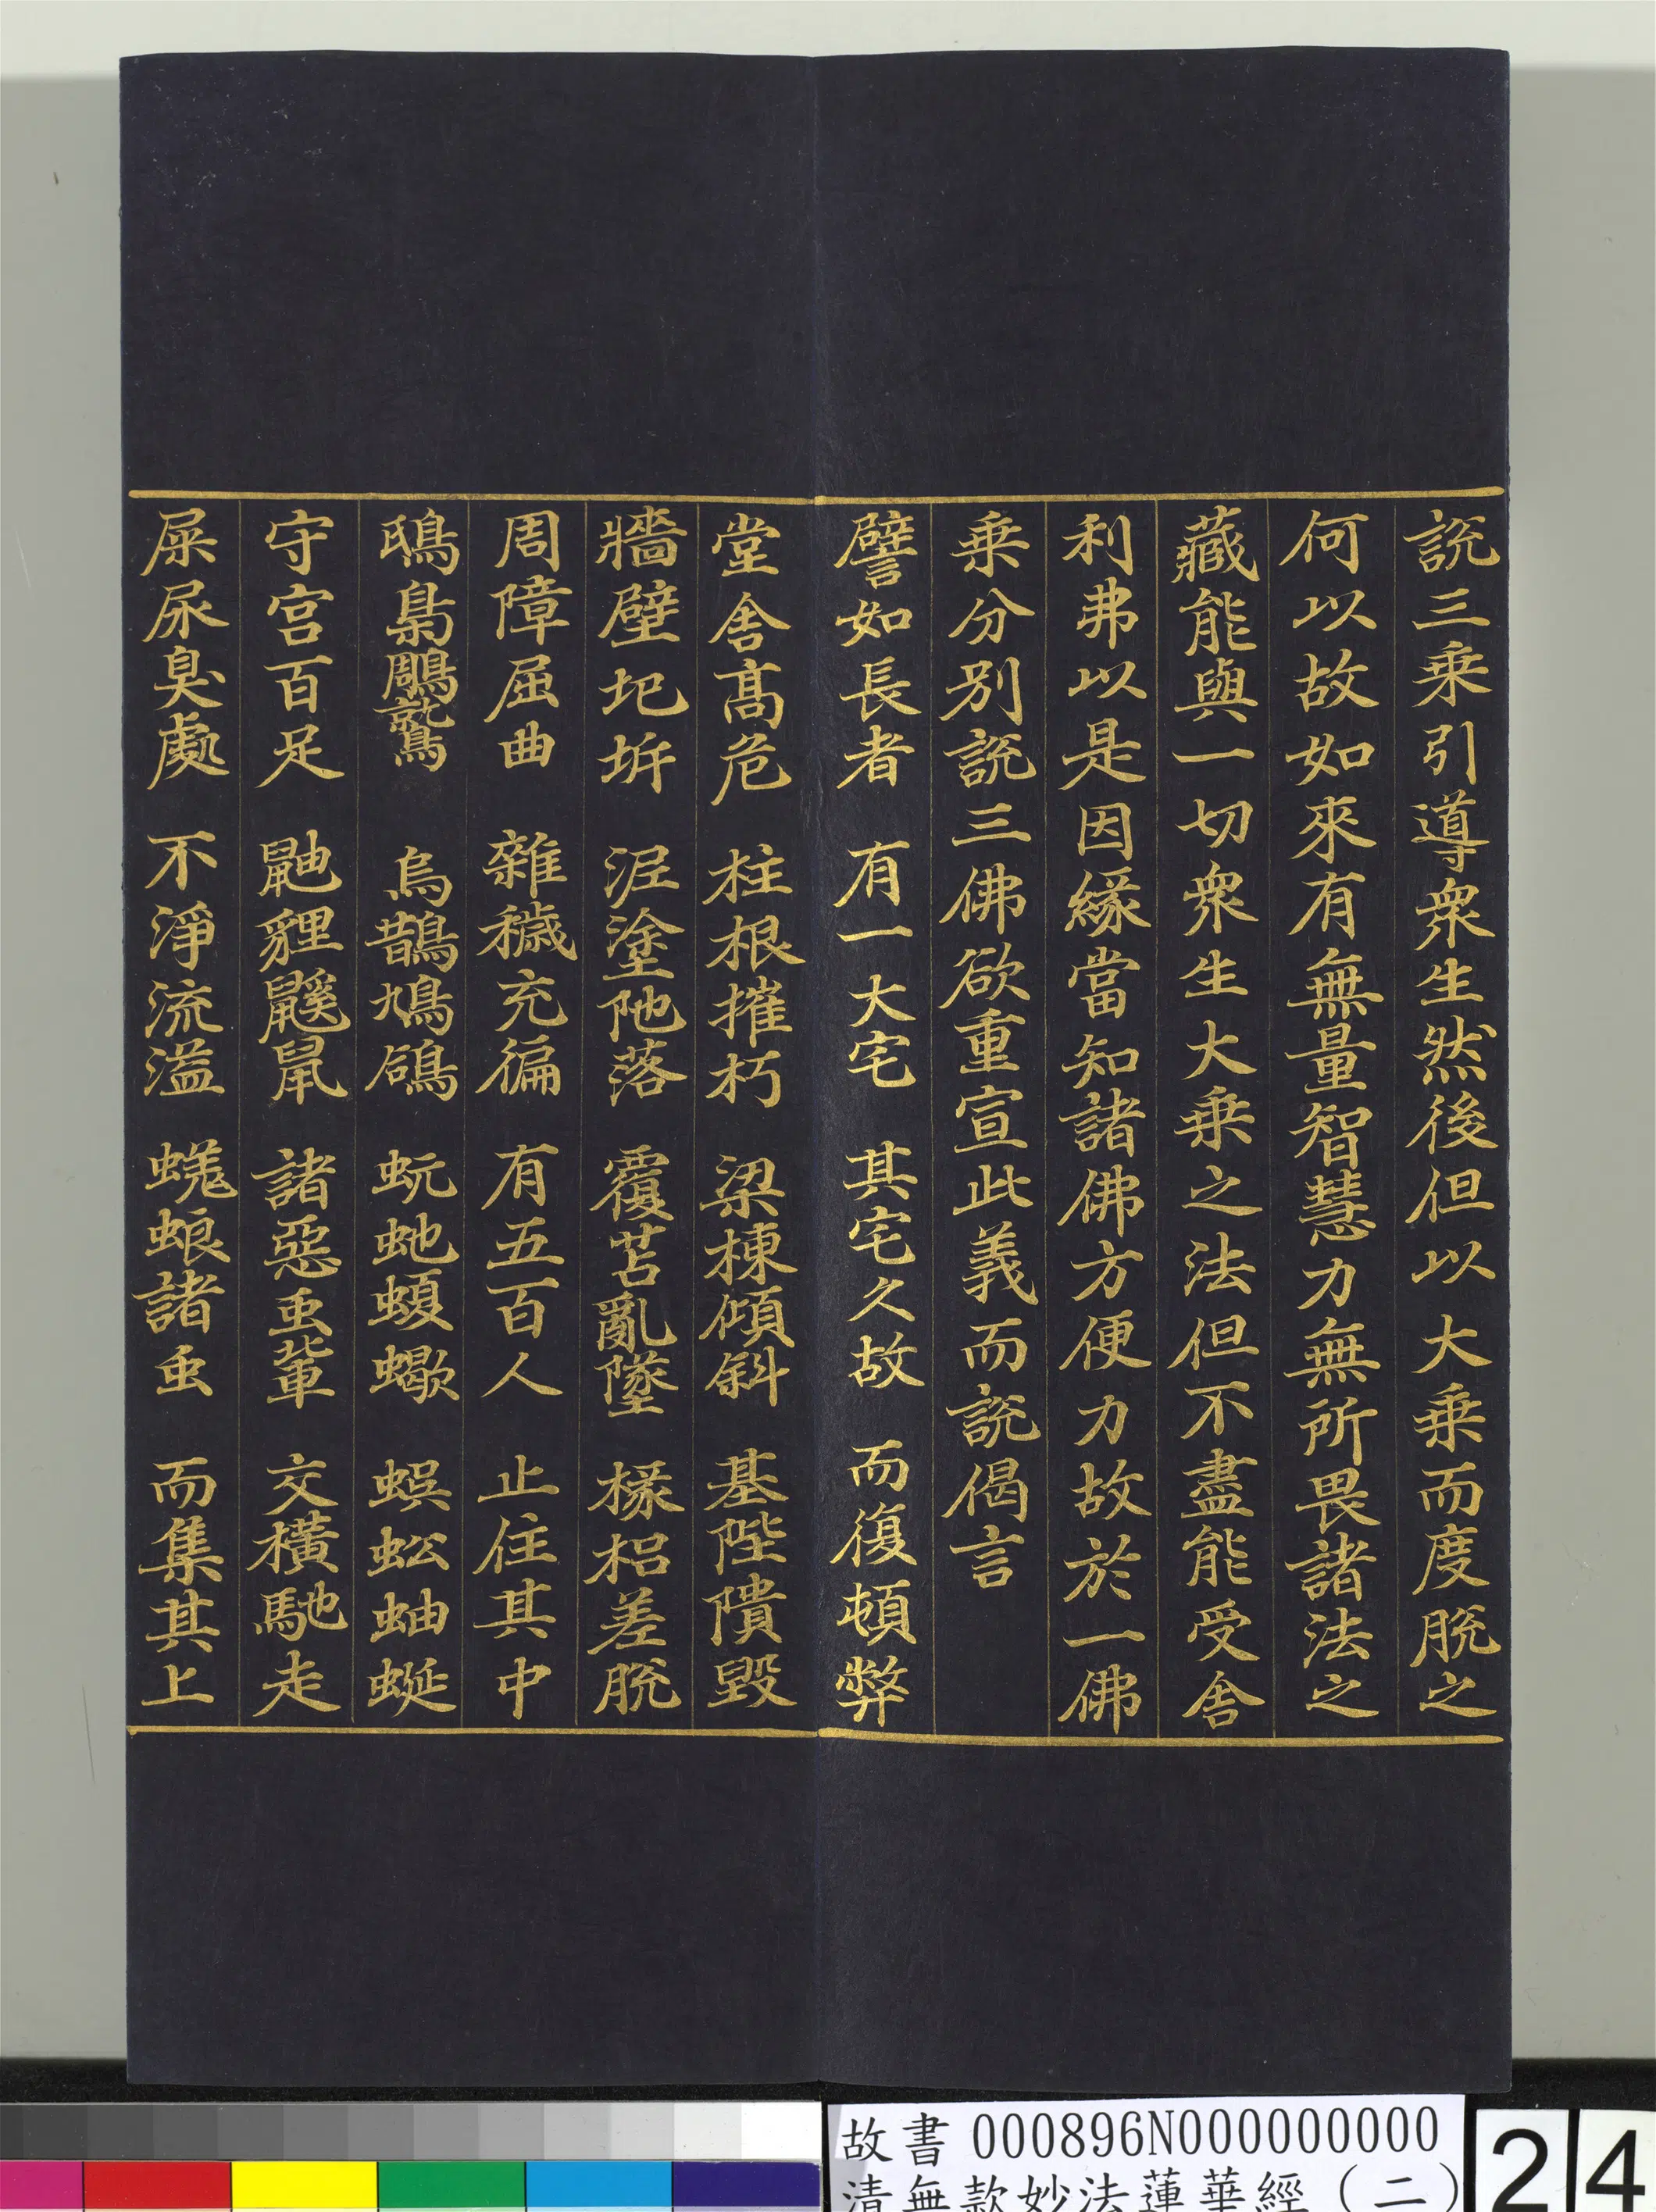 說三乗引導衆生然後但以大乗而度脫之
何以故如來有無量智慧力無所畏諸法之
藏能與一切衆生大乗之法但不盡能受舍
利弗以是因緣當知諸佛方便力故於一佛
乗分別說三佛欲重宣此義而說偈言
譬如長者　有一大宅　其宅久故　而復頓弊
堂舍髙危　柱根摧朽　梁棟傾斜　基陛隤毀
牆壁圮坼　泥塗阤落　覆苫亂墜　椽梠差脫
周障屈曲　雜穢充徧　有五百人　止住其中
鴟梟鵰鷲　烏鵲鳩鴿　蚖虵蝮蠍　蜈蚣蚰蜒
守宮百足　鼬貍鼷鼠　諸惡虫輩　交橫馳走
屎尿臭處　不淨流溢　蜣蜋諸虫　而集其上
故書 000896N000000000
清無款妙法蓮華經（二）
24